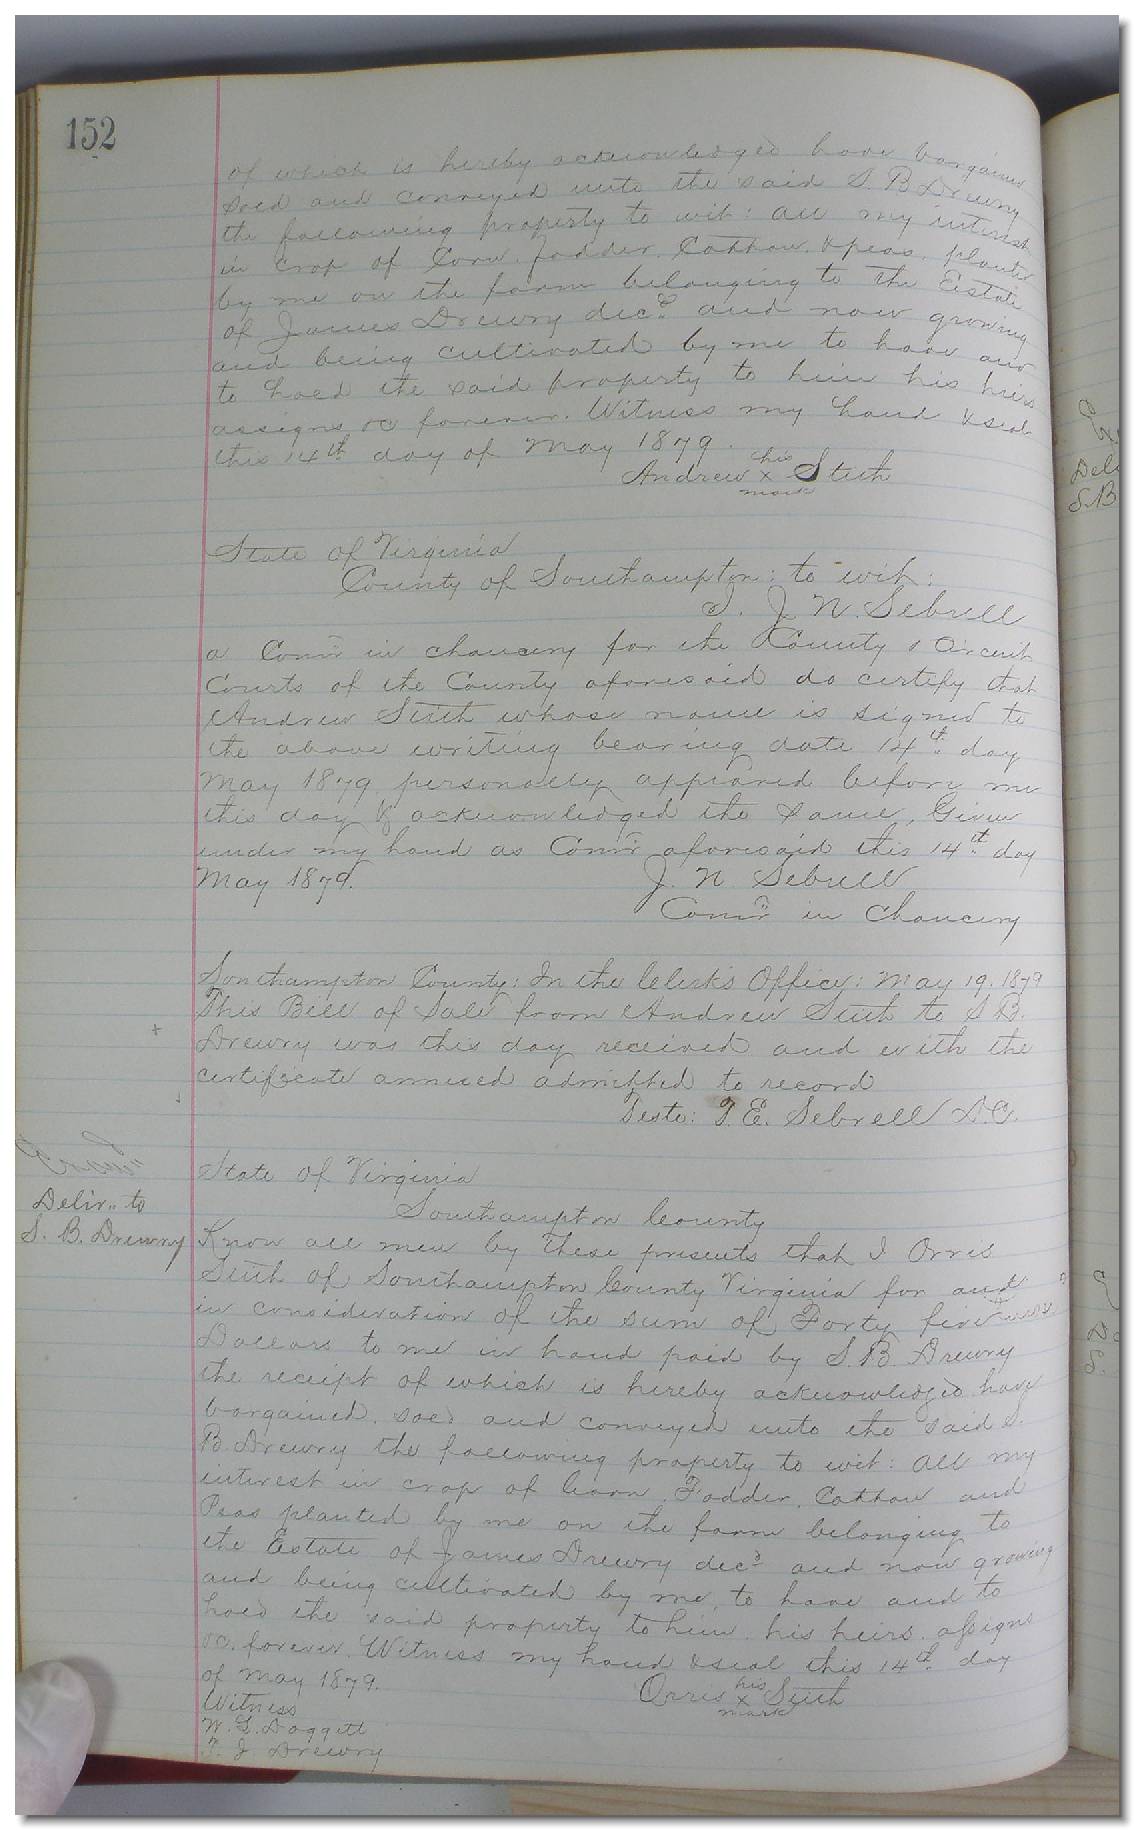 152
of which is hereby acknowledged have bargained
sold and conveyed unto the said S. B Drewry
the following property to wit: all my interest
in crop of Corn. fodder. Cotton. & peas. planted
by me on the farm belonging to the Estate
of James Drewry decd. and now growing
and being cultivated by me to have and
to hold the said property to him his heirs
assigns &c forever. Witness my hand & seal
this 14th day of May 1879.
his
Andrew x Stith
mark
State of Virginia
County of Southampton: to wit:
I. J N. Sebrell
a Comr in chancery for the County & Circuit
Courts of the County aforesaid do certify that
Andrew Stith whose name is signed to
the above writing bearing date 14th day
May 1879 personally appeared before me
this day & acknowledged the same, Given
under my hand as Comr aforesaid this 14th day
May 1879.
J. N. Sebrell
Comr in Chancery
Southampton County: In the Clerk's Office: May 19. 1879
This Bill of Sale from Andrew Stith to S B.
Drewry was this day received and with the
certificate annexed admitted to record
Teste: T. E. Sebrell D.C.
Deliv. to
S. B. Drewry
State of Virginia
Southampton County
Know all men by these presents that I Orris
Stith of Southampton County Virginia for and
in consideration of the sum of Forty five
Dollars to me in hand paid by S. B Drewry
the receipt of which is hereby acknowledged have
bargained. sold and conveyed unto the said S.
B. Drewry the following property to wit: all my
interest in crop of Corn. Fodder. Cotton and
Peas planted by me on the farm belonging to
the Estate of James Drewry decd. and now growing
and being cultivated by me, to have and to
hold the said property to him. his heirs. assigns
&c. forever. Witness my hand & seal this 14th day
of May 1879.
his
Orris x Stith
mark
Witness
W. G. Doggett
T. J Drewry
Del
S. B